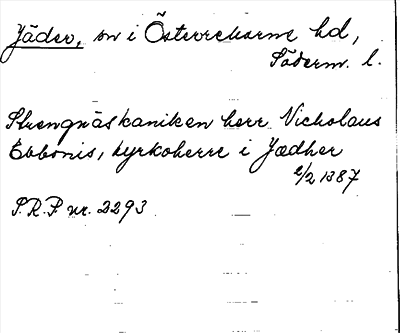 Jäder, sn i Österrekarne hd,
Söderm. l.
Strengnäskaniken herr Nicholaus
Ebbonis, kyrkoherre i Jædher
2/2 1387
S.R.P. nr. 2293